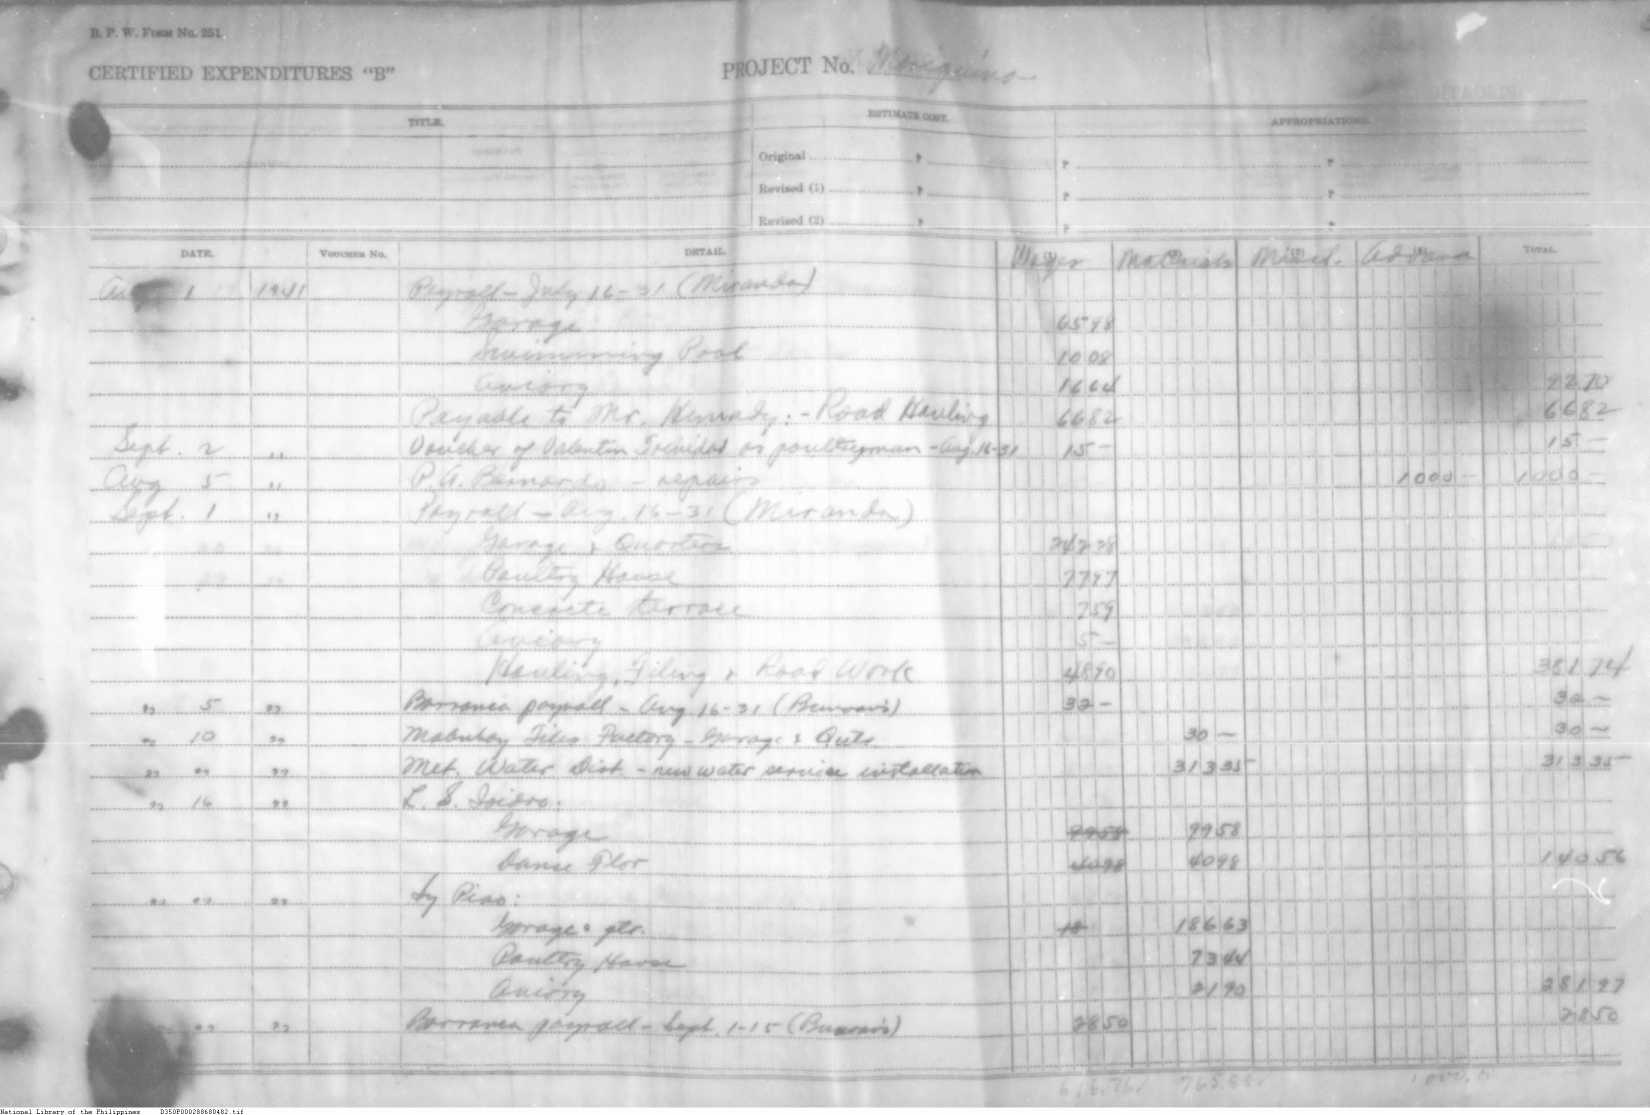 B. P. W. Form No. 251
CERTIFIED EXPENDITURES "B"
PROJECT No. Mariquina
TITLE.
ESTIMATE COST.
APPROPRIATIONS.
Original P P P
Revised (1) P P P
Revised (2) P P P
DATE. VOUCHER No. DETAIL. Wages Materials Miscl. Advance TOTAL.
Aug 1 1941 Payroll - July 16-31 (Miranda)
Garage 6598
Swimming Pool 1008
Aviary 1664 9270
Payable to Mr. Kennedy: - Road Hauling 6682 6682
Sept. 2 " Voucher of Valentin Trinidad as poultryman - Aug. 16-31 15 - 15 -
Aug 5 " P. A. Bernardo - repairs 1000 - 1000 -
Sept. 1 " Payroll - Aug. 16-31 (Miranda)
Garage & Quarters 24228
Poultry House 7797
Concrete terrace 759
Aviary 5 -
Hauling, Filing & Road Work 4890 38174
" 5 " Barranca payroll - Aug 16-31 ( 32 - 32 -
" 10 " Mabuhay Tiles Factory - Garage & Qutr. 30 - 30 -
" " " Met. Water Dist. - new water service installation 31335 31335
" 16 " L. S. Isidro:
Garage 9958 9958
Danse Flor 4098 4098 14056
" " " Sy Piao:
Garage & qtr. 18 18663
Poultry House 7344
Aviary 2190 28197
" " Barranca payroll - Sept. 1-15 ( 2850 2850
616.76 765.88
National Library of the Philippines D350P000288680482.tif